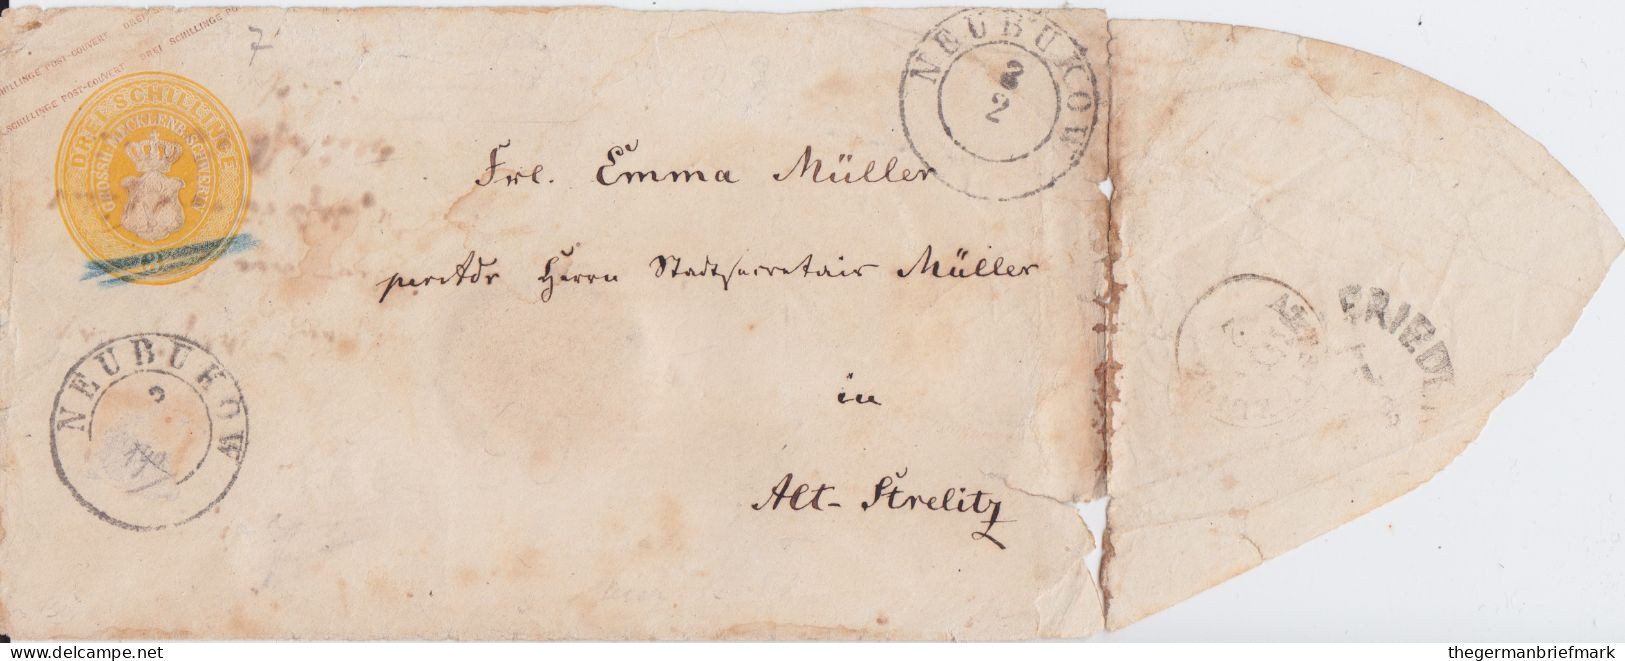 DREI SCHILLINGE POST-COUVERT DREI SCHILLINGE
SCHILLINGE POST-COUVERT
DREI SCHILLINGE
GROSSH. MECKLENB. SCHWERIN
3
7
NEUBUKOW
2
Frl. Emma Müller
per Adr Herrn Stadtsecretair Müller
in
Alt-Strelitz
NEUBUKOW
3
FRIEDL
delcampe.net
thegermanbriefmark